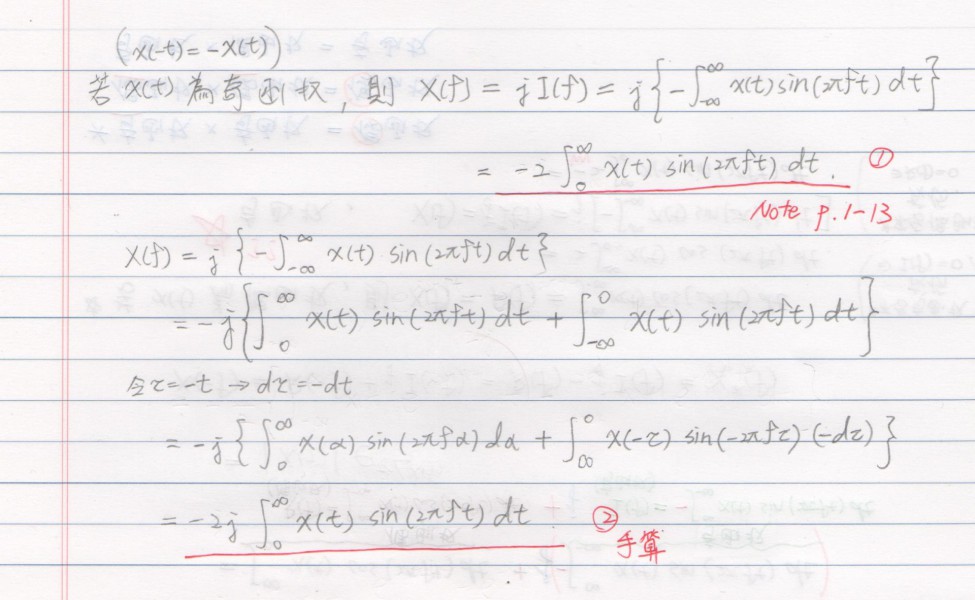 (x(-t) = -x(t))
若 x(t) 為奇函权，則 X(f) = j I(f) = j { -∫_{-∞}^{∞} x(t) sin(2πft) dt }
= -2 ∫_0^∞ x(t) sin(2πft) dt. ①
Note p.1-13
X(f) = j { -∫_{-∞}^{∞} x(t) sin(2πft) dt }
= -j { ∫_0^∞ x(t) sin(2πft) dt + ∫_{-∞}^0 x(t) sin(2πft) dt }
令 τ = -t → dτ = -dt
= -j { ∫_0^∞ x(α) sin(2πfα) dα + ∫_∞^0 x(-τ) sin(-2πfτ) (-dτ) }
= -2j ∫_0^∞ x(t) sin(2πft) dt ②
手算